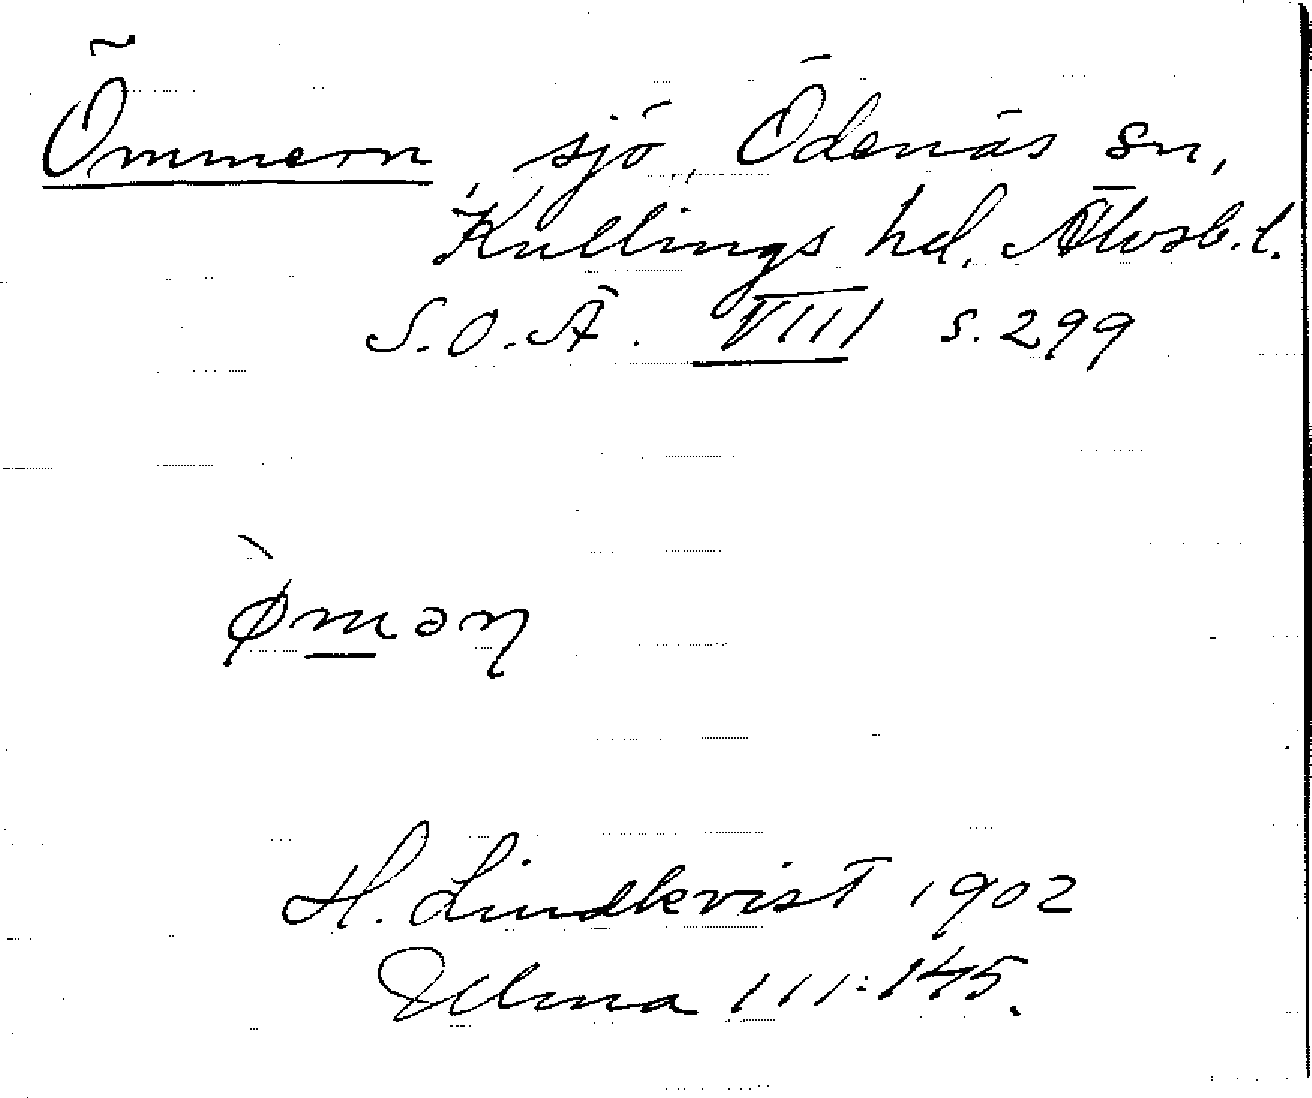 ~
Ömmern, sjö, Ödenäs sn,
Kullings hd. Älvsb. l.
S.O.Ä. VIII s. 299
ømən
H. Lindkvist 1902
111:145.